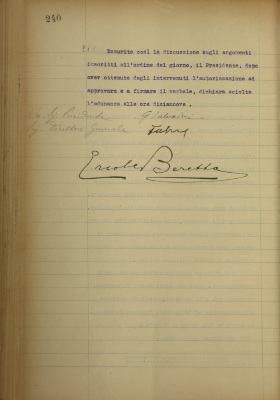 240
Esaurita così la discussione sugli argomenti
inscritti all'ordine del giorno, il Presidente, dopo
aver ottenuto dagli intervenuti l'autorizzazione ad
approvare e a firmare il verbale, dichiara sciolta
l'adunanza alle ore diciannove.
Il Presidente
Il Direttore Generale
Ercole Beretta